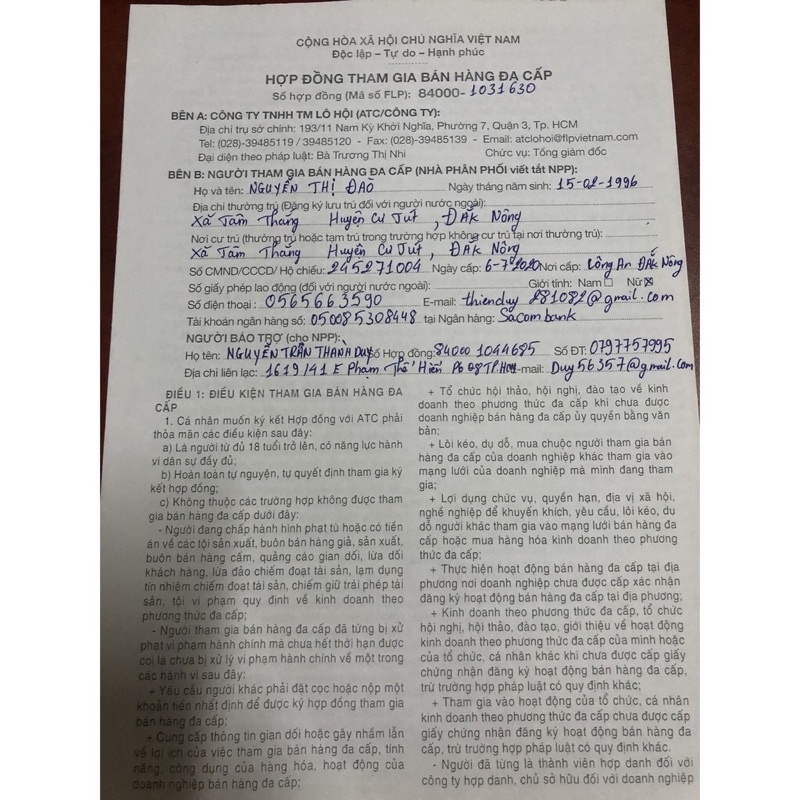 CỘNG HÒA XÃ HỘI CHỦ NGHĨA VIỆT NAM
Độc lập – Tự do – Hạnh phúc
HỢP ĐỒNG THAM GIA BÁN HÀNG ĐA CẤP
Số hợp đồng (Mã số FLP): 84000-1031630
BÊN A: CÔNG TY TNHH TM LÔ HỘI (ATC/CÔNG TY):
Địa chỉ trụ sở chính: 193/11 Nam Kỳ Khởi Nghĩa, Phường 7, Quận 3, Tp. HCM
Tel: (028)-39485119 / 39485120 - Fax: (028)-39485139 - Email: atclohoi@flpvietnam.com
Đại diện theo pháp luật: Bà Trương Thị Nhi Chức vụ: Tổng giám đốc
BÊN B: NGƯỜI THAM GIA BÁN HÀNG ĐA CẤP (NHÀ PHÂN PHỐI viết tắt NPP):
Họ và tên: NGUYỄN THỊ ĐÀO Ngày tháng năm sinh: 15-02-1996
Địa chỉ thường trú (Đăng ký lưu trú đối với người nước ngoài):
Xã Tâm Thắng Huyện Cư Jút, ĐẮK Nông
Nơi cư trú (thường trú hoặc tạm trú trong trường hợp không cư trú tại nơi thường trú):
Xã Tâm Thắng Huyện Cư Jút, ĐẮK Nông
Số CMND/CCCD/ Hộ chiếu: 245271004 Ngày cấp: 6-7-2020 Nơi cấp: Công An ĐẮK Nông
Số giấy phép lao động (đối với người nước ngoài): Giới tính: Nam Nữ
Số điện thoại: 0565663590 E-mail: thienduy281082@gmail.com
Tài khoản ngân hàng số: 050085308448 tại Ngân hàng: Sacombank
NGƯỜI BẢO TRỢ (cho NPP):
Họ tên: NGUYỄN TRẦN THÀNH DUY Số Hợp đồng: 84000 1044685 Số ĐT: 0797757995
Địa chỉ liên lạc: 1619/41 E Phạm Thế Hiển P6 Q8 TP.HCM E-mail: Duy56357@gmail.com
ĐIỀU 1: ĐIỀU KIỆN THAM GIA BÁN HÀNG ĐA
CẤP
1. Cá nhân muốn ký kết Hợp đồng với ATC phải
thỏa mãn các điều kiện sau đây:
a) Là người từ đủ 18 tuổi trở lên, có năng lực hành
vi dân sự đầy đủ;
b) Hoàn toàn tự nguyện, tự quyết định tham gia ký
kết hợp đồng;
c) Không thuộc các trường hợp không được tham
gia bán hàng đa cấp dưới đây:
- Người đang chấp hành hình phạt tù hoặc có tiền
án về các tội sản xuất, buôn bán hàng giả, sản xuất,
buôn bán hàng cấm, quảng cáo gian dối, lừa dối
khách hàng, lừa đảo chiếm đoạt tài sản, lạm dụng
tín nhiệm chiếm đoạt tài sản, chiếm giữ trái phép tài
sản, tội vi phạm quy định về kinh doanh theo
phương thức đa cấp;
- Người tham gia bán hàng đa cấp đã từng bị xử
phạt vi phạm hành chính mà chưa hết thời hạn được
coi là chưa bị xử lý vi phạm hành chính về một trong
các hành vi sau đây:
+ Yêu cầu người khác phải đặt cọc hoặc nộp một
khoản tiền nhất định để được ký hợp đồng tham gia
bán hàng đa cấp;
+ Cung cấp thông tin gian dối hoặc gây nhầm lẫn
về lợi ích của việc tham gia bán hàng đa cấp, tính
năng, công dụng của hàng hóa, hoạt động của
doanh nghiệp bán hàng đa cấp;
+ Tổ chức hội thảo, hội nghị, đào tạo về kinh
doanh theo phương thức đa cấp khi chưa được
doanh nghiệp bán hàng đa cấp ủy quyền bằng văn
bản;
+ Lôi kéo, dụ dỗ, mua chuộc người tham gia bán
hàng đa cấp của doanh nghiệp khác tham gia vào
mạng lưới của doanh nghiệp mà mình đang tham
gia;
+ Lợi dụng chức vụ, quyền hạn, địa vị xã hội,
nghề nghiệp để khuyến khích, yêu cầu, lôi kéo, dụ
dỗ người khác tham gia vào mạng lưới bán hàng đa
cấp hoặc mua hàng hóa kinh doanh theo phương
thức đa cấp;
+ Thực hiện hoạt động bán hàng đa cấp tại địa
phương nơi doanh nghiệp chưa được cấp xác nhận
đăng ký hoạt động bán hàng đa cấp tại địa phương;
+ Kinh doanh theo phương thức đa cấp, tổ chức
hội nghị, hội thảo, đào tạo, giới thiệu về hoạt động
kinh doanh theo phương thức đa cấp của mình hoặc
của tổ chức, cá nhân khác khi chưa được cấp giấy
chứng nhận đăng ký hoạt động bán hàng đa cấp,
trừ trường hợp pháp luật có quy định khác;
+ Tham gia vào hoạt động của tổ chức, cá nhân
kinh doanh theo phương thức đa cấp chưa được cấp
giấy chứng nhận đăng ký hoạt động bán hàng đa
cấp, trừ trường hợp pháp luật có quy định khác.
- Người đã từng là thành viên hợp danh đối với
công ty hợp danh, chủ sở hữu đối với doanh nghiệp